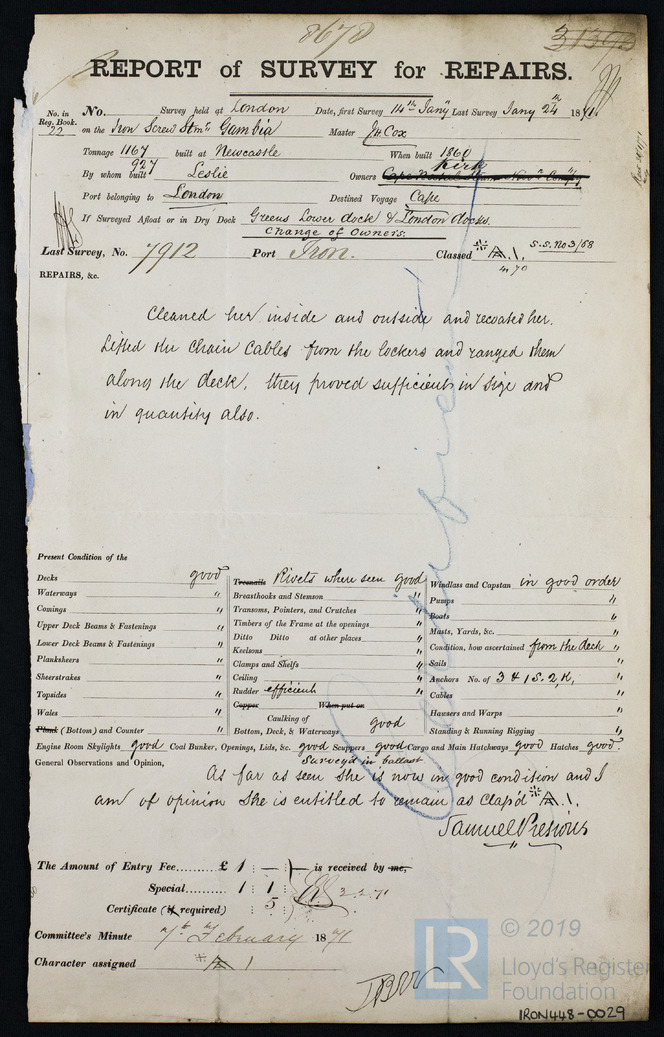 8678
REPORT of SURVEY for REPAIRS.
No. in Reg. Book. 22
No. Survey held at London Date, first Survey 14th Jany Last Survey Jany 24th 1871.
on the Iron Screw Stmr Gambia Master J H Cox
Tonnage 1167 built at Newcastle When built 1860
927
By whom built Leslie Owners Kirk
Port belonging to London Destined Voyage Cape
If Surveyed Afloat or in Dry Dock Greens Lower dock & London docks.
Change of Owners.
Last Survey, No. 7912 Port Iron. Classed A.1. S.S. No 3/68
4.70
REPAIRS, &c.
Cleaned her inside and outside and recoated her.
Lifted the Chain Cables from the lockers and ranged them
along the deck, they proved sufficient in size and
in quantity also.
Present Condition of the
Decks good
Waterways "
Comings "
Upper Deck Beams & Fastenings "
Lower Deck Beams & Fastenings "
Planksheers "
Sheerstrakes "
Topsides "
Wales "
Plank (Bottom) and Counter "
Treenails Rivets where seen good
Breasthooks and Stemson "
Transoms, Pointers, and Crutches "
Timbers of the Frame at the openings "
Ditto Ditto at other places "
Keelsons "
Clamps and Shelfs "
Ceiling "
Rudder efficient "
Copper When put on
Caulking of
Bottom, Deck, & Waterways good
Windlass and Capstan in good order
Pumps "
Boats "
Masts, Yards, &c. "
Condition, how ascertained from the deck "
Sails "
Anchors No. of 3 & 1 S. 2 K, "
Cables "
Hawsers and Warps "
Standing & Running Rigging "
Engine Room Skylights good Coal Bunker, Openings, Lids, &c. good Scuppers good Cargo and Main Hatchways good Hatches good.
General Observations and Opinion, Survey'd in ballast
As far as seen she is now in good condition and I
am of opinion she is entitled to remain as Class'd A.1.
Samuel Presious
The Amount of Entry Fee......... £ 1 : — : — is received by me,
Special......... 1 1 2.2.71
Certificate (if required) : 5 :
Committee's Minute 7th February 1871
Character assigned A 1
LR
© 2019
Lloyd's Register
Foundation
IRON448-0029